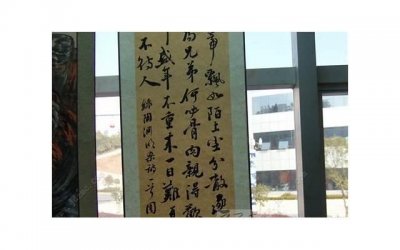 飘如陌上尘分散逐
為兄弟何必骨肉親得歡
盛年不重来一日難再
不待人
録陶渊明杂詩一首